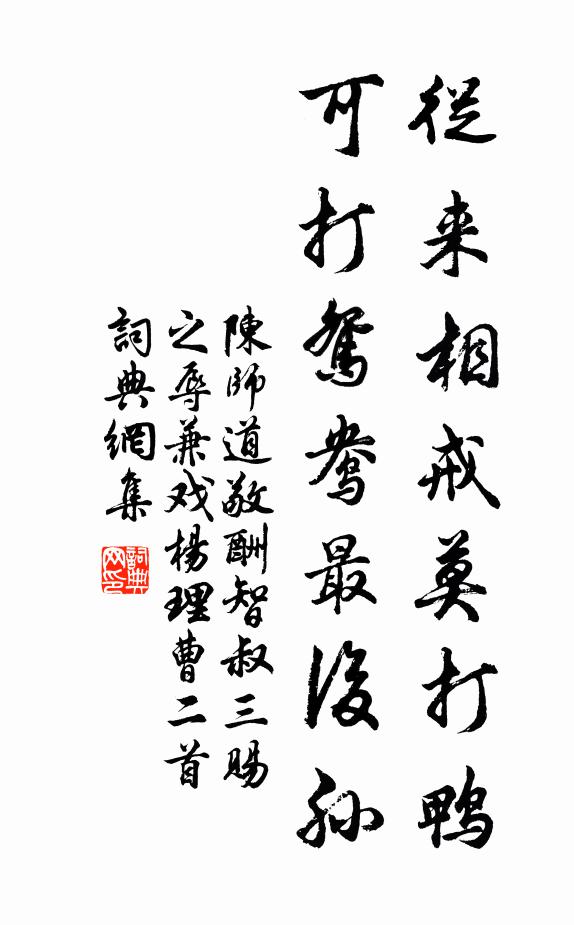 從来相戒莫打鴨
可打鴛鴦最後孫
陳師道敬酬智叔三賜
之辱兼戏楊理曹二首
詞典網集
詞典网印